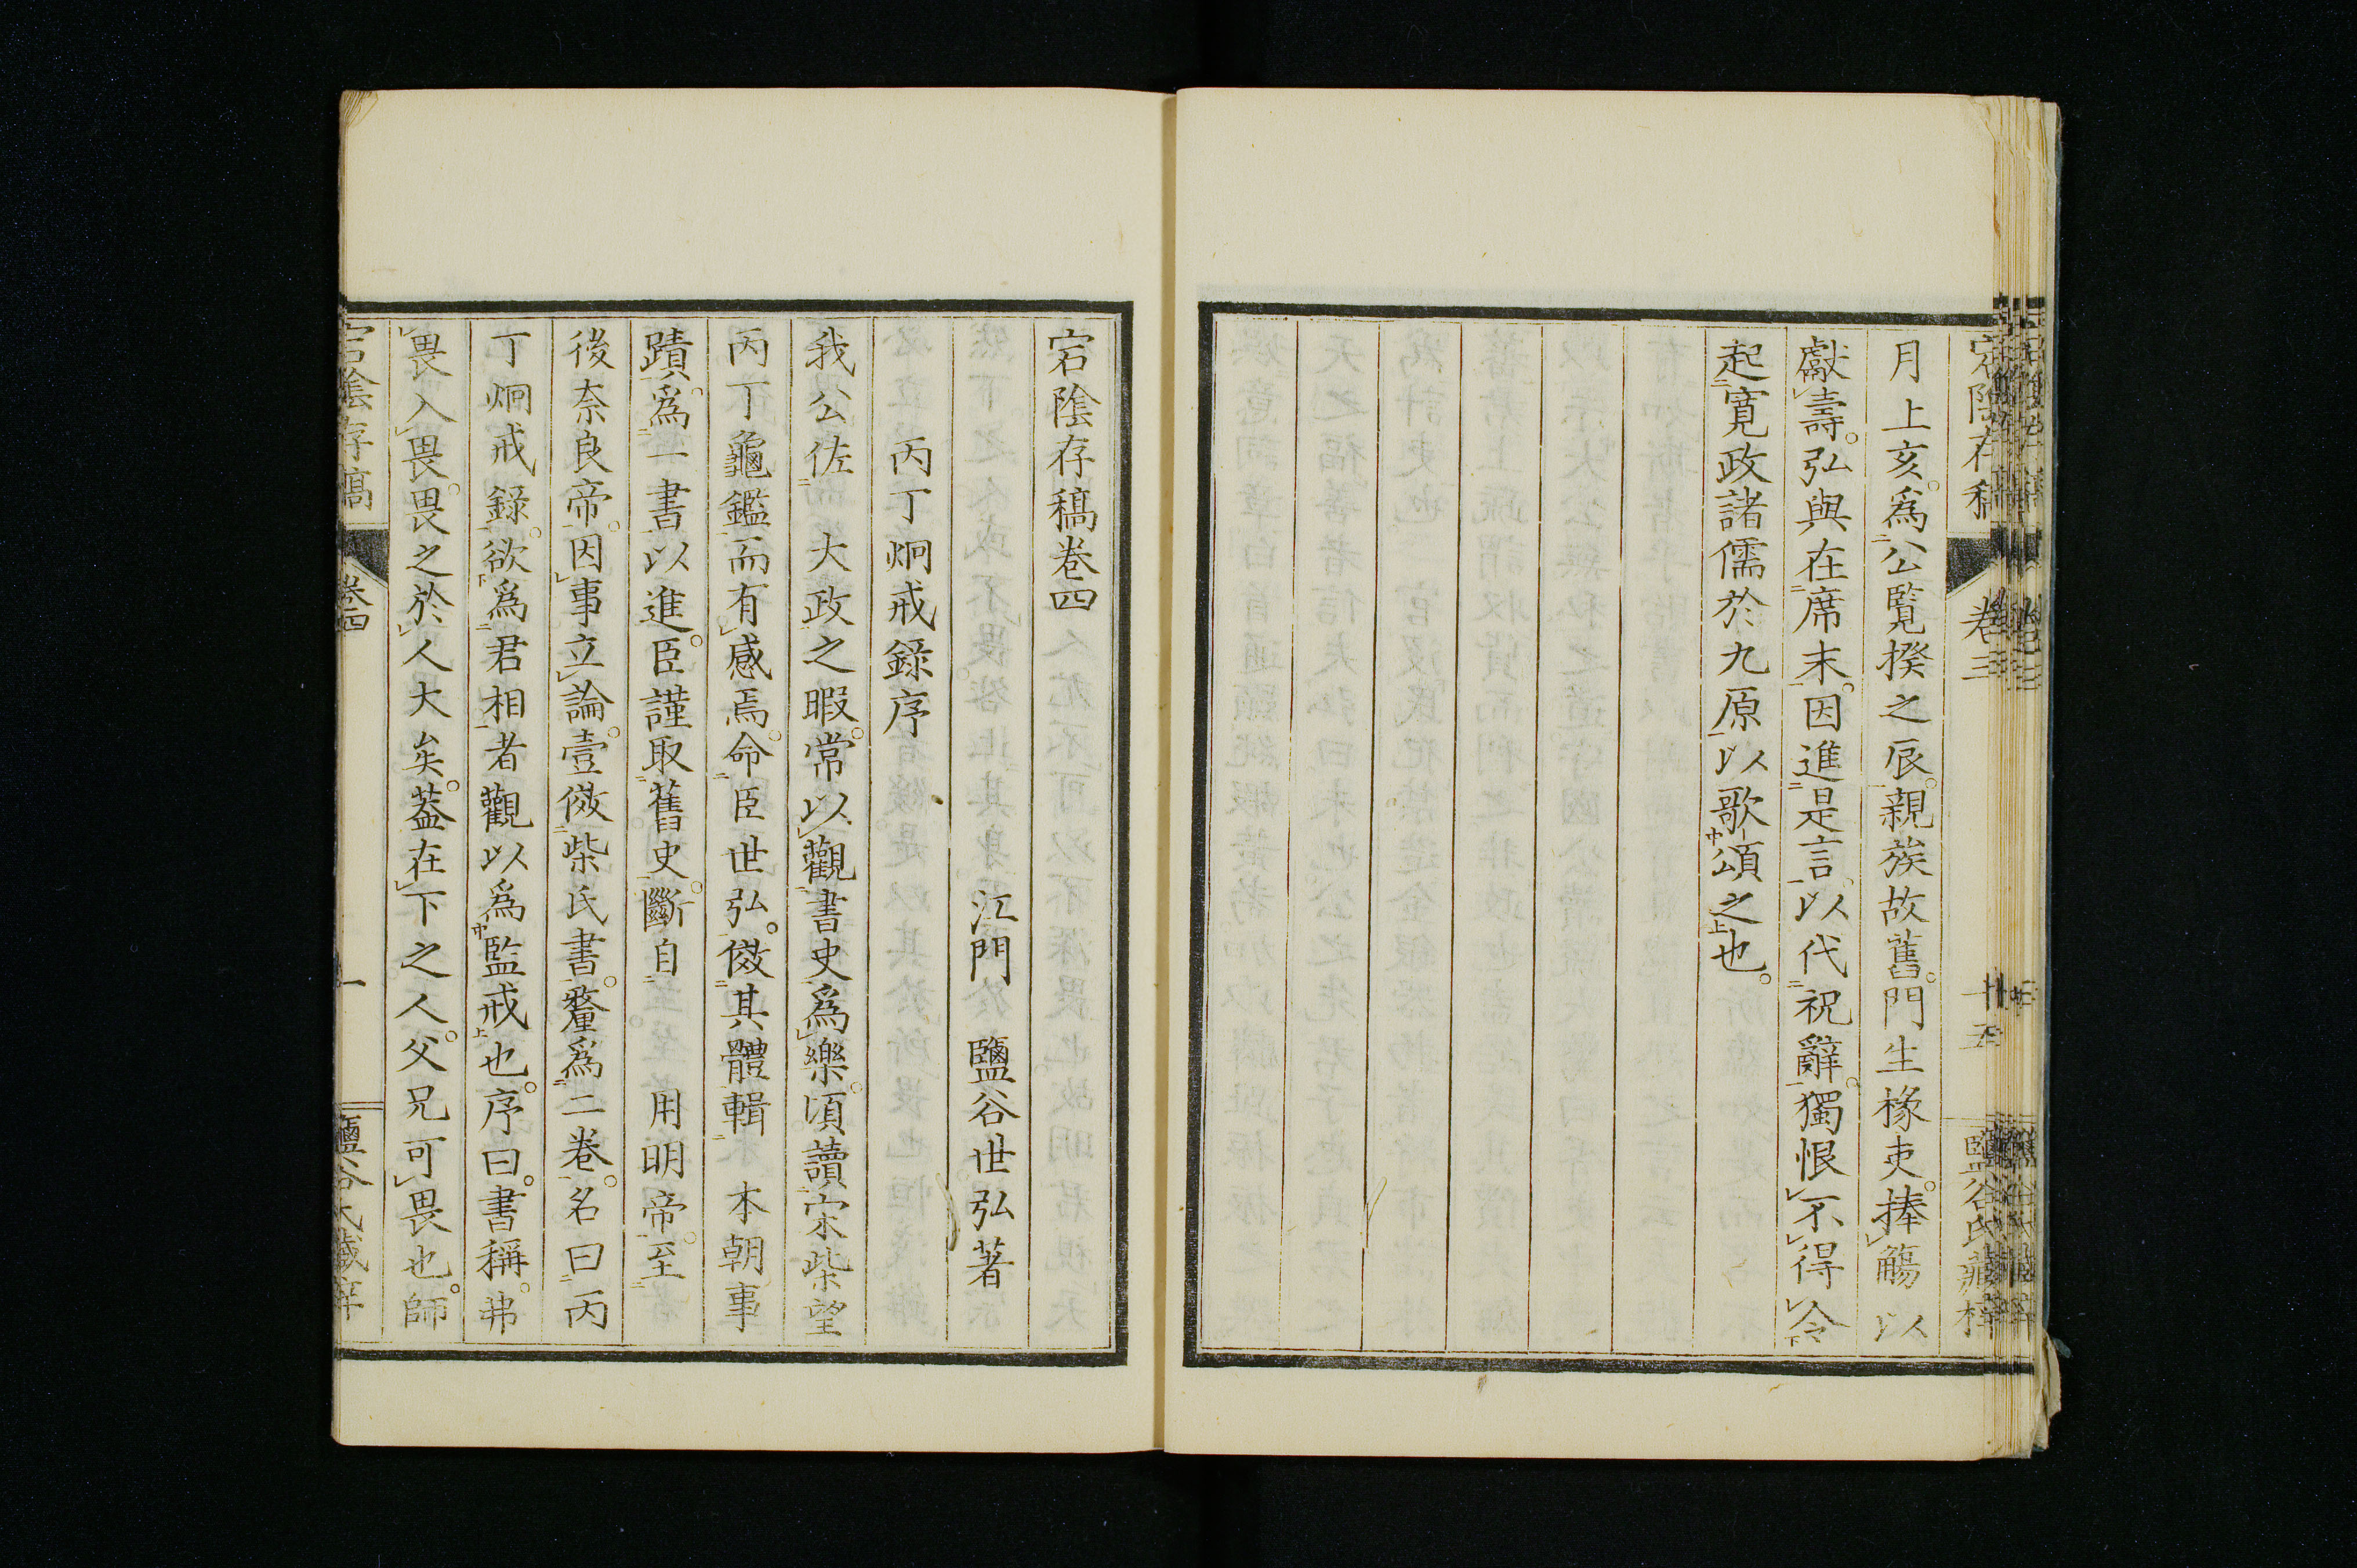 宕陰存稿
卷三
十五
鹽谷氏藏梓
月上亥。爲公覽揆之辰。親族故舊。門生椽吏。捧觴以
獻壽。弘與在席末。因進是言。以代祝辭。獨恨不得令
起寬政諸儒於九原以歌頌之也。
宕陰存稿卷四
江門　鹽谷世弘著
丙丁炯戒錄序
我公佐大政之暇。常以觀書史爲樂。頃讀宋柴望
丙丁龜鑑而有感焉。命臣世弘。倣其體輯　本朝事
蹟。爲一書以進。臣謹取舊史。斷自　用明帝。至
後奈良帝。因事立論。壹倣柴氏書。釐爲二卷。名曰丙
丁炯戒錄。欲爲君相者觀以爲監戒也。序曰。書稱。弗
畏入畏。畏之於人大矣。葢在下之人。父兄可畏也。師
宕陰存稿
卷四
一
鹽谷氏藏梓